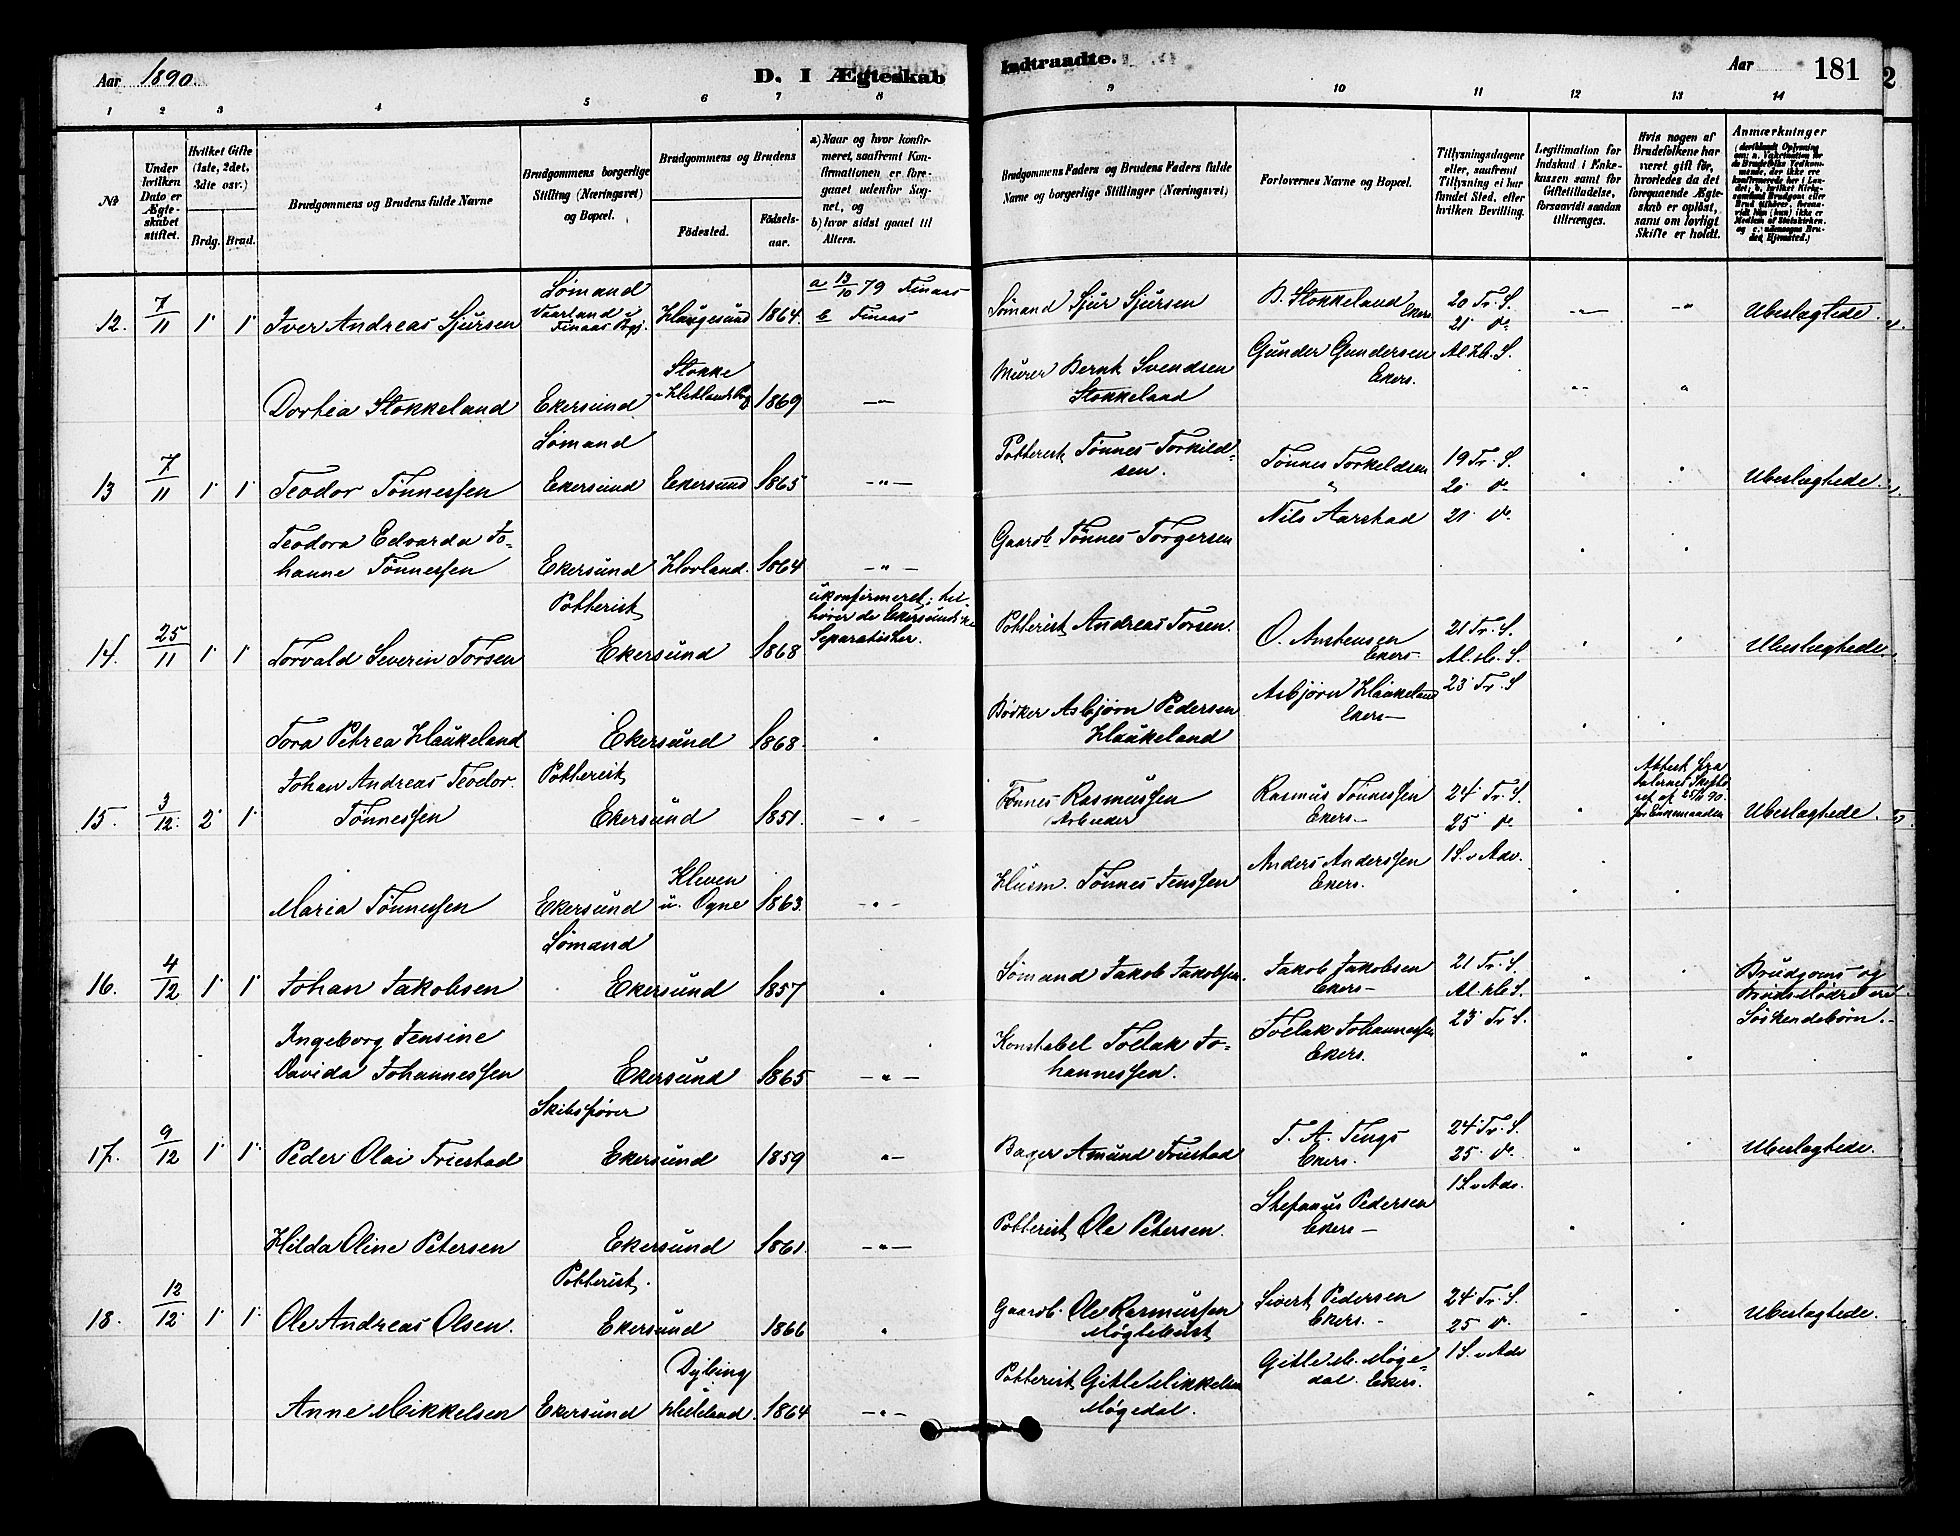 Aar 1890.
D. I Ægteskab
Indtraadte.
Aar
181
2
1 2 3 4 5 6 7 8 9 10 11 12 13 14
No
Under hvilken Dato er Ægteskabet stiftet.
Hvilket Gifte (1ste, 2det, 3die osv.)
Brdg. Brud.
Brudgommens og Brudens fulde Navne
Brudgommens borgerlige Stilling (Næringsvei) og Bopæl.
Brudgommens og Brudens
Fødested.
Fødselsaar.
a) Naar og hvor konfirmeret, saafremt Konfirmationen er foregaaet udenfor Sognet, og
b) hvor sidst gaaet til Alters.
Brudgommens Faders og Brudens Faders fulde Navne og borgerlige Stillinger (Næringsvei)
Forlovernes Navne og Bopæl.
Tillysningsdagene eller, saafremt Tillysning ei har fundet Sted, efter hvilken Bevilling.
Legitimation for Indskud i Enkekassen samt for Giftetilladelse, forsaavidt saadan tiltrænges.
Hvis nogen af Brudefolkene har været gift før, hvorledes da det foregaaende Ægteskab er opløst, samt om lovligt Skifte er holdt.
Anmærkninger
12. 7/11 1 1 Iver Andreas Sjursen Sømand Vaarland i Finaas Pgj. Haugesund 1864. a 19/10 79 Finaas b Finaas Sømand Sjur Sjursen B. Stokkeland Ekers. 20 Tr. S. 21 d° Ubeslægtede.
Dorthea Stokkeland Ekersund Stokke i Hetlands Pg 1869 Murer Bernt Svendsen Stokkeland Gunder Gundersen Ekers. Al. H. S.
13 7/11 1 1 Teodor Tønnessen Sømand Ekersund Ekersund 1865 Potterist Tønnes Torkildsen. Tønnes Torkeldsen 19 Tr. S. 20 d° Ubeslægtede.
Teodora Edvarda Johanne Tønnessen Ekersund Hovland. 1864 Gaardb. Tønnes Torgersen Nils Aarstad 21 d°
14. 25/11 1 1 Torvald Severin Torsen Potterist Ekersund 1868 ukonfirmeret; tilhører de Ekersundske Separatister. Potterist Andreas Torsen. O. Anstensen Ekers 21 Tr. S. Al. H. S. Ubeslægtede.
Tora Petrea Haukeland Ekersund 1868. Bødker Asbjørn Pedersen Haukeland Asbjørn Haukeland Ekers 23 Tr. S
15. 3/12. 2 1 Johan Andreas Teodor Tønnessen Potterist Ekersund 1851. Tønnes Rasmussen Arbeider Rasmus Tønnessen Ekers 24 Tr. S. 25 d° Attest fra Dalernes af 25/11 90. for Enkemanden Ubeslægtede.
Maria Tønnessen Ekersund Kleven u. Ogne 1863. Husm. Tønnes Jenssen Anders Anderssen Ekers. 1 S. v Adv.
16. 4/12 1 1 Johan Jakobsen Sømand Ekersund 1857 Sømand Jakob Jakobsen. Jakob Jakobsen Ekers 21 Tr. S. Al. H. S. Brudgoms og Bruds Mødre ere Søskendebørn.
Ingeborg Jensine Davida Johannessen Ekersund 1865 Konstabel Tollak Johannessen. Tollak Johannessen Ekers. 23 Tr. S.
17. 9/12 1 1 Peder Olai Friestad Skibsfører Ekersund 1859 Bager Amund Friestad T. A. Tengs Ekers. 24 Tr. S. 25 d° Ubeslægtede.
Hilda Oline Petersen Ekersund 1861. Potterist Ole Petersen. Stefanus Pedersen Ekers 1 S. v Adv.
18. 12/12. 1 1 Ole Andreas Olsen. Potterist. Ekersund 1866 Gaardb. Ole Rasmussen Møgletvedt Sivert Pedersen Ekers. 24 Tr. S. 25 d° Ubeslægtede.
Anne Mikkelsen Ekersund Dybing Hetland. 1864 Potterist Gitle Mikkelsen Møgedal. Gitle M. Møgedal. Ekers. 1 S. v Adv